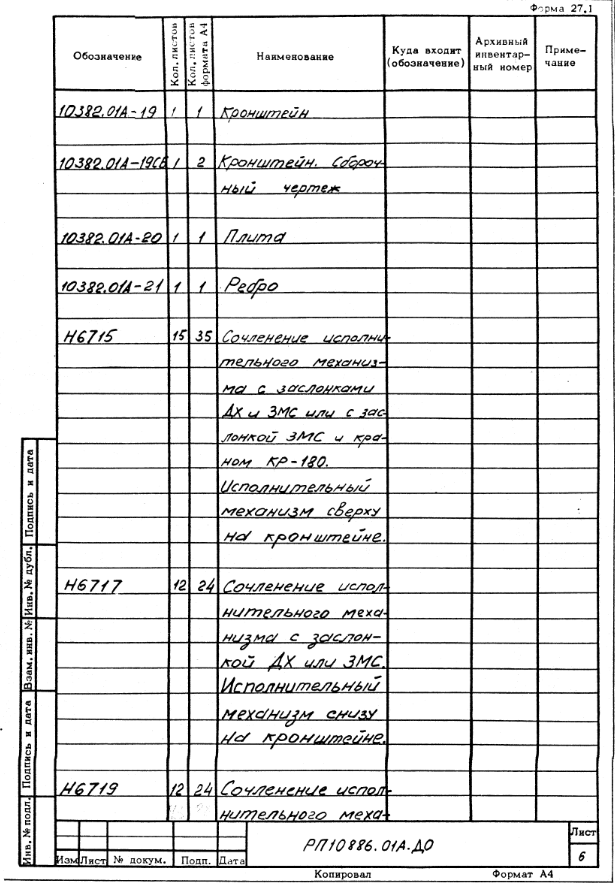 Форма 27.1
Обозначение Кол. листов Кол. листов формата А4 Наименование Куда входит (обозначение) Архивный инвентарный номер Примечание
10382.01А-19 1 1 Кронштейн
10382.01А-19СБ 1 2 Кронштейн. Сбороч-
ный чертеж
10382.01А-20 1 1 Плита
10382.01А-21 1 1 Ребро
Н6715 15 35 Сочленение исполни-
тельного механиз-
ма с заслонками
ДХ и ЗМС или с зас-
лонкой ЗМС и кра-
ном КР-180.
Исполнительный
механизм сверху
на кронштейне.
Н6717 12 24 Сочленение испол-
нительного меха-
низма с заслон-
кой ДХ или ЗМС.
Исполнительный
механизм снизу
на кронштейне.
Н6719 12 24 Сочленение испол-
нительного меха-
Инв. № подл. Подпись и дата Взам. инв. № Инв. № дубл. Подпись и дата
РП10886.01А.ДО
Лист
6
Изм Лист № докум. Подп. Дата
Копировал Формат А4